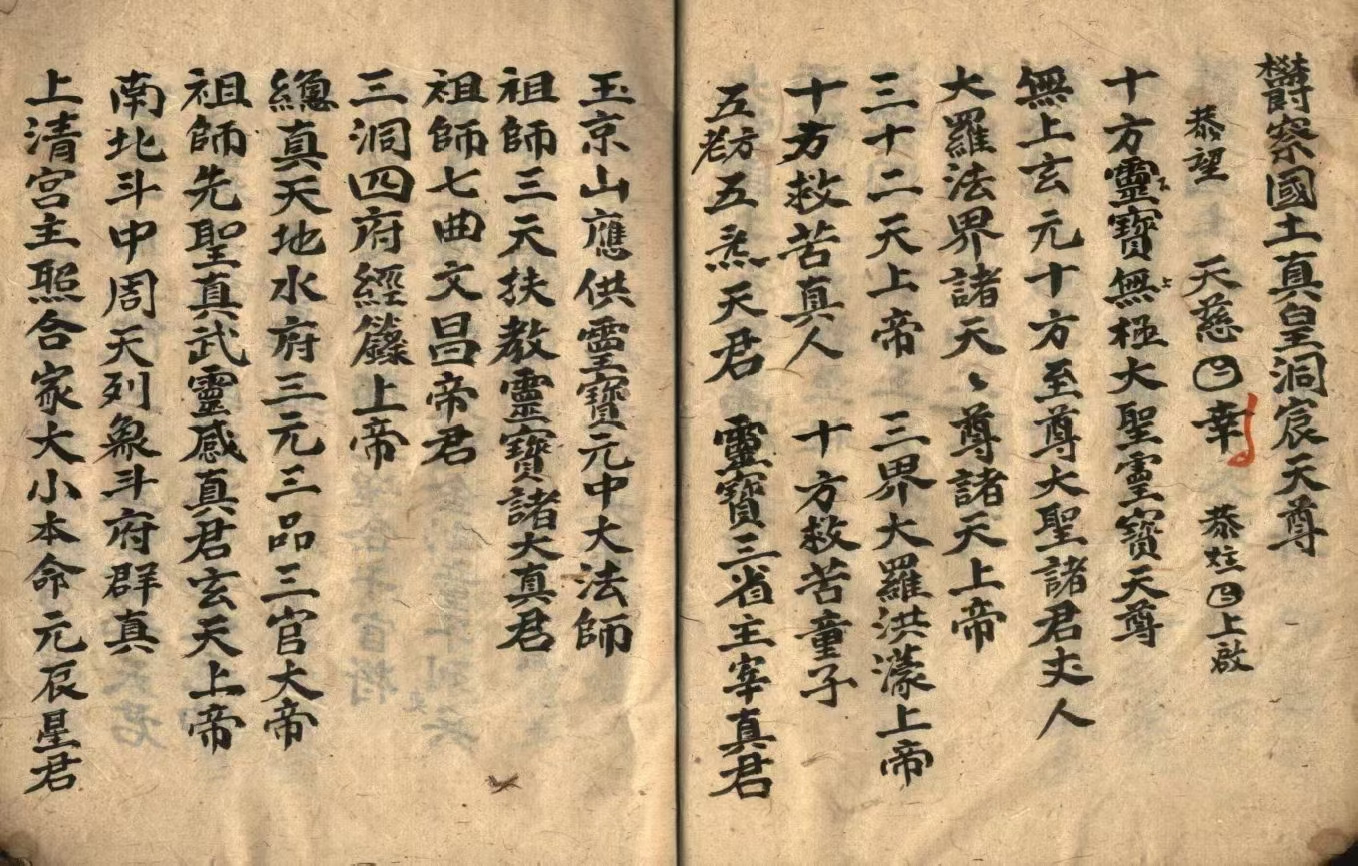 欝察國土真皇洞宸天尊
恭望 天慈 幸 恭炷 上啟
十方靈寶無極大聖靈寶天尊
無上玄元十方至尊大聖諸君丈人
大羅法界諸天〻尊諸天上帝
三十二天上帝 三界大羅洪濛上帝
十方救苦真人 十方救苦童子
五方五炁天君 靈寶三省主宰真君
老
玉京山應供靈寶元中大法師
祖師三天扶教靈寶諸大真君
祖師七曲文昌帝君
三洞四府經籙上帝
緫真天地水府三元三品三官大帝
祖師先聖真武靈感真君玄天上帝
南北斗中周天列象斗府群真
上清宫主照合家大小本命元辰星君